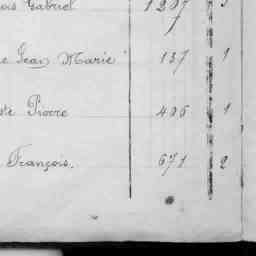 Gabriel 1207
Jean Marie 137 1
Pierre 406 1
François. 671 2